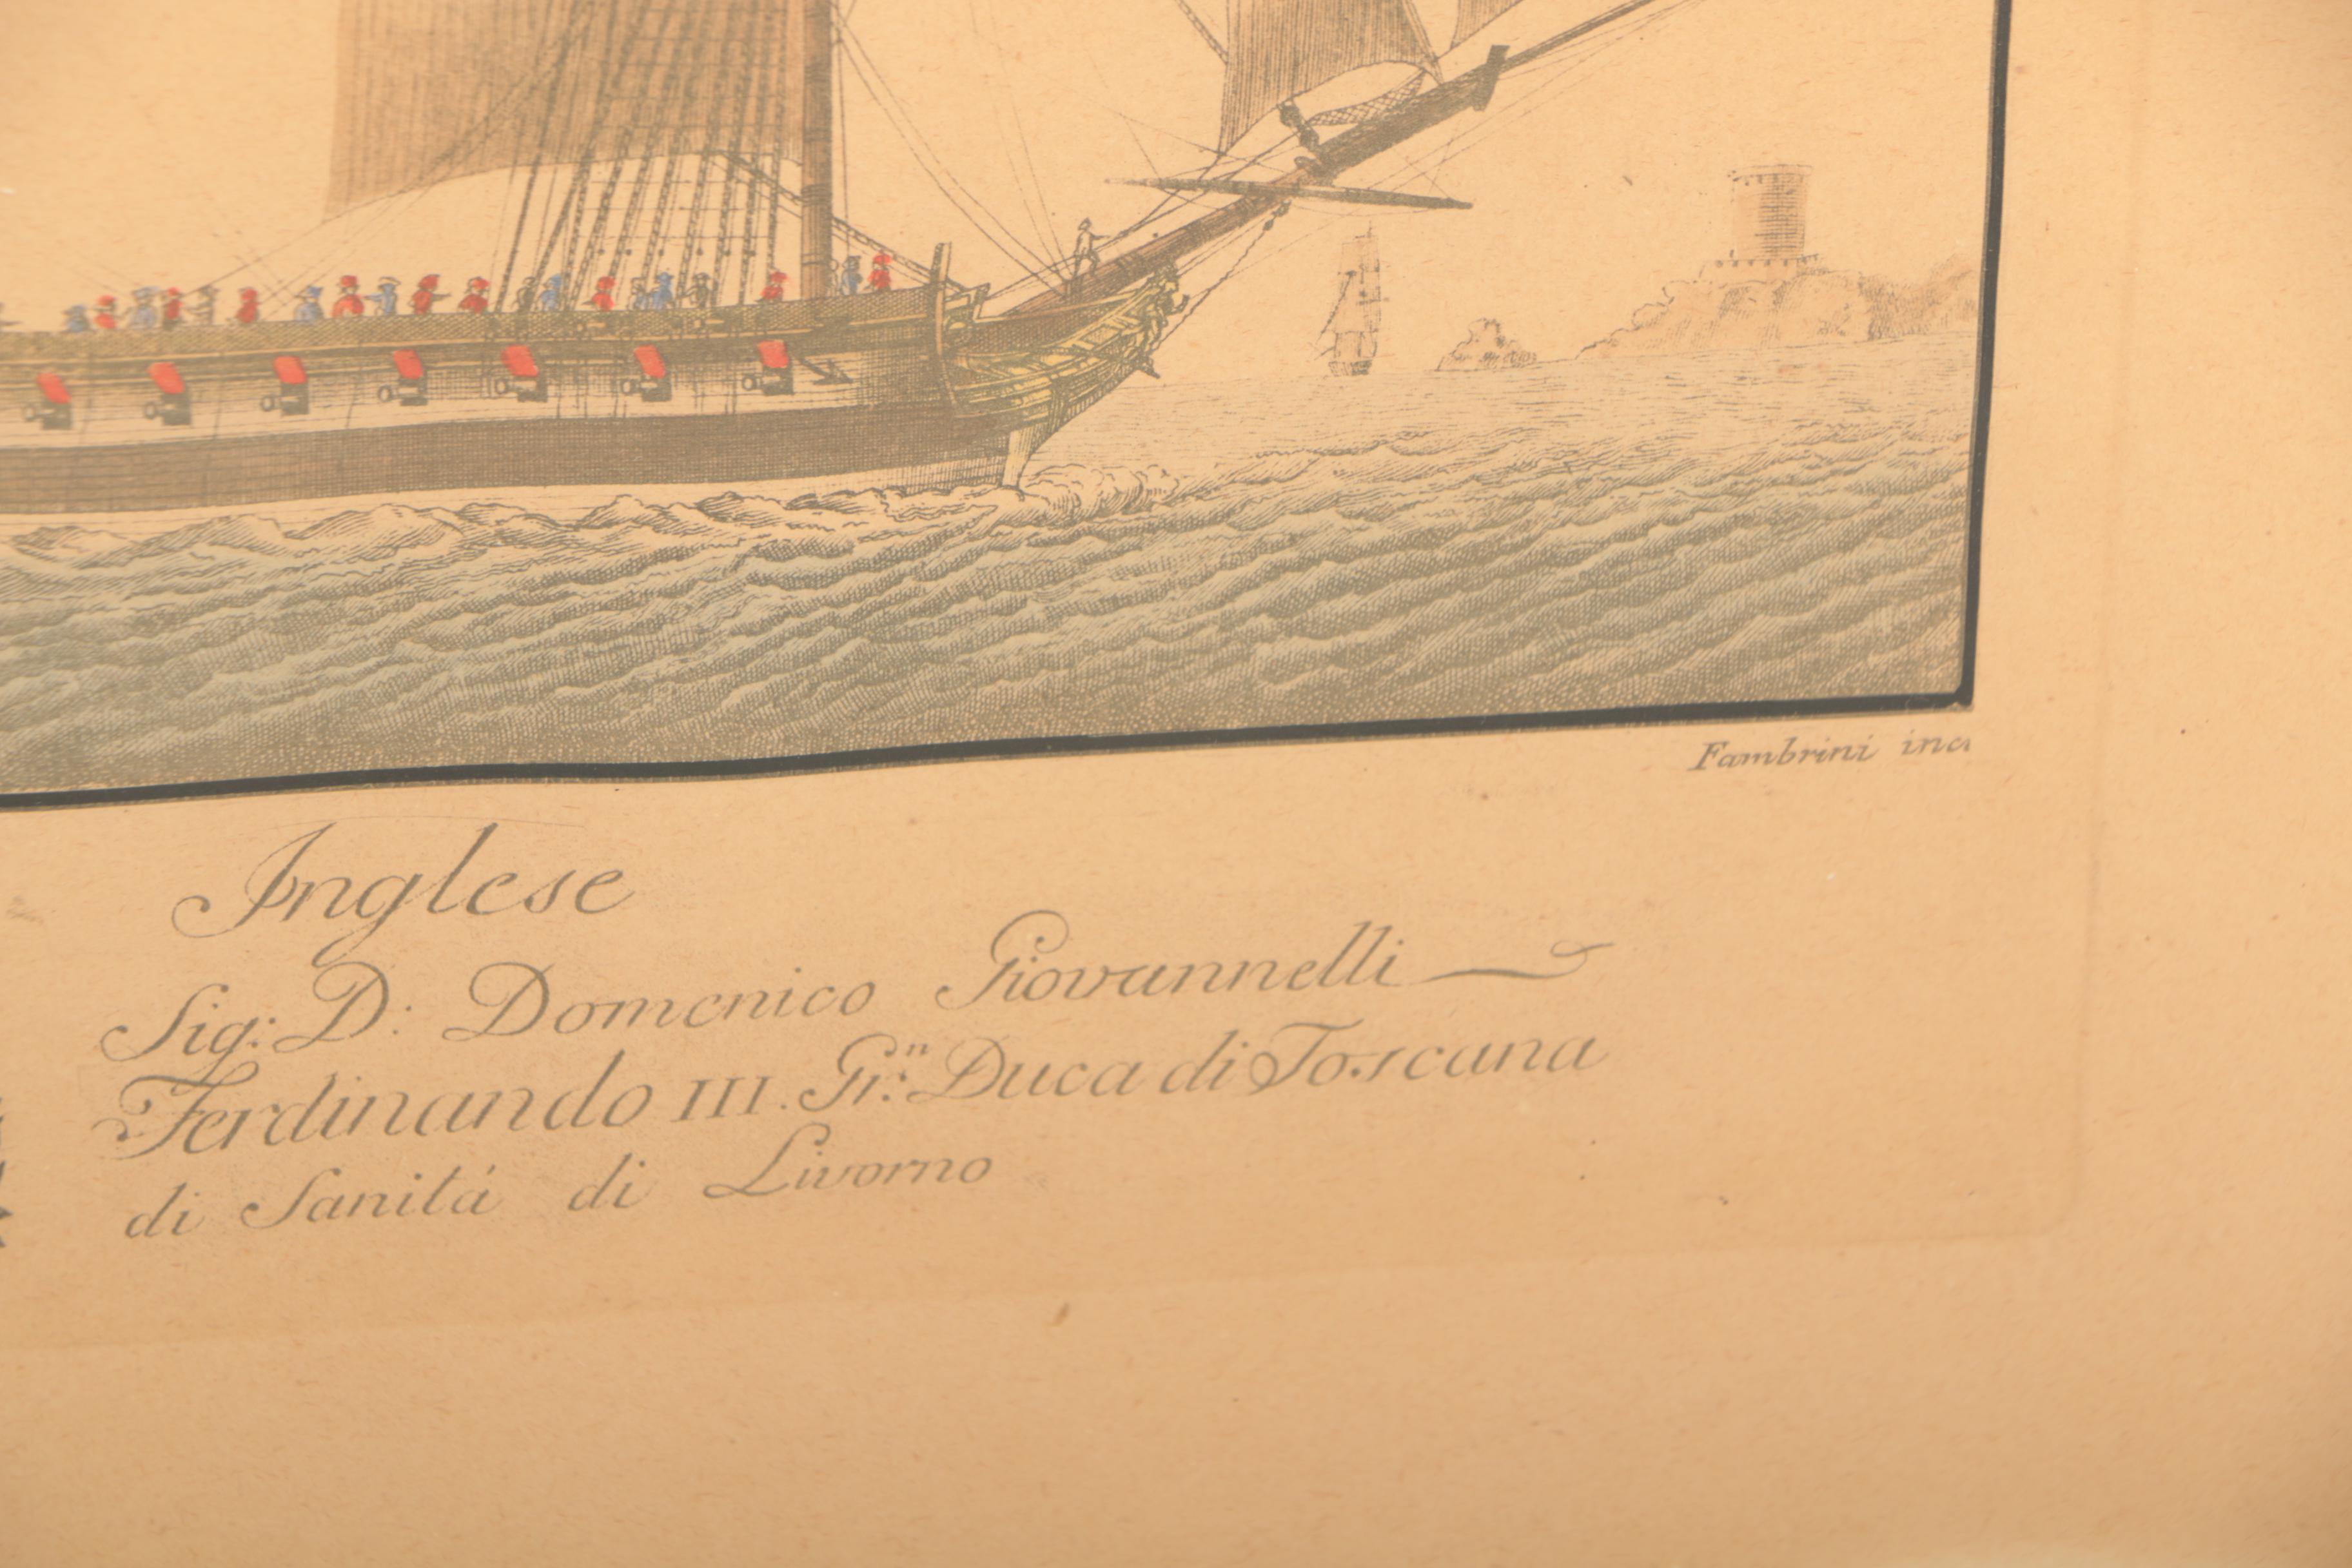 Fambrini inc
Inglese
Sig: D: Domenico Giovannelli
Ferdinando III. Gr.ⁿ Duca di Toscana
di Sanitá di Livorno